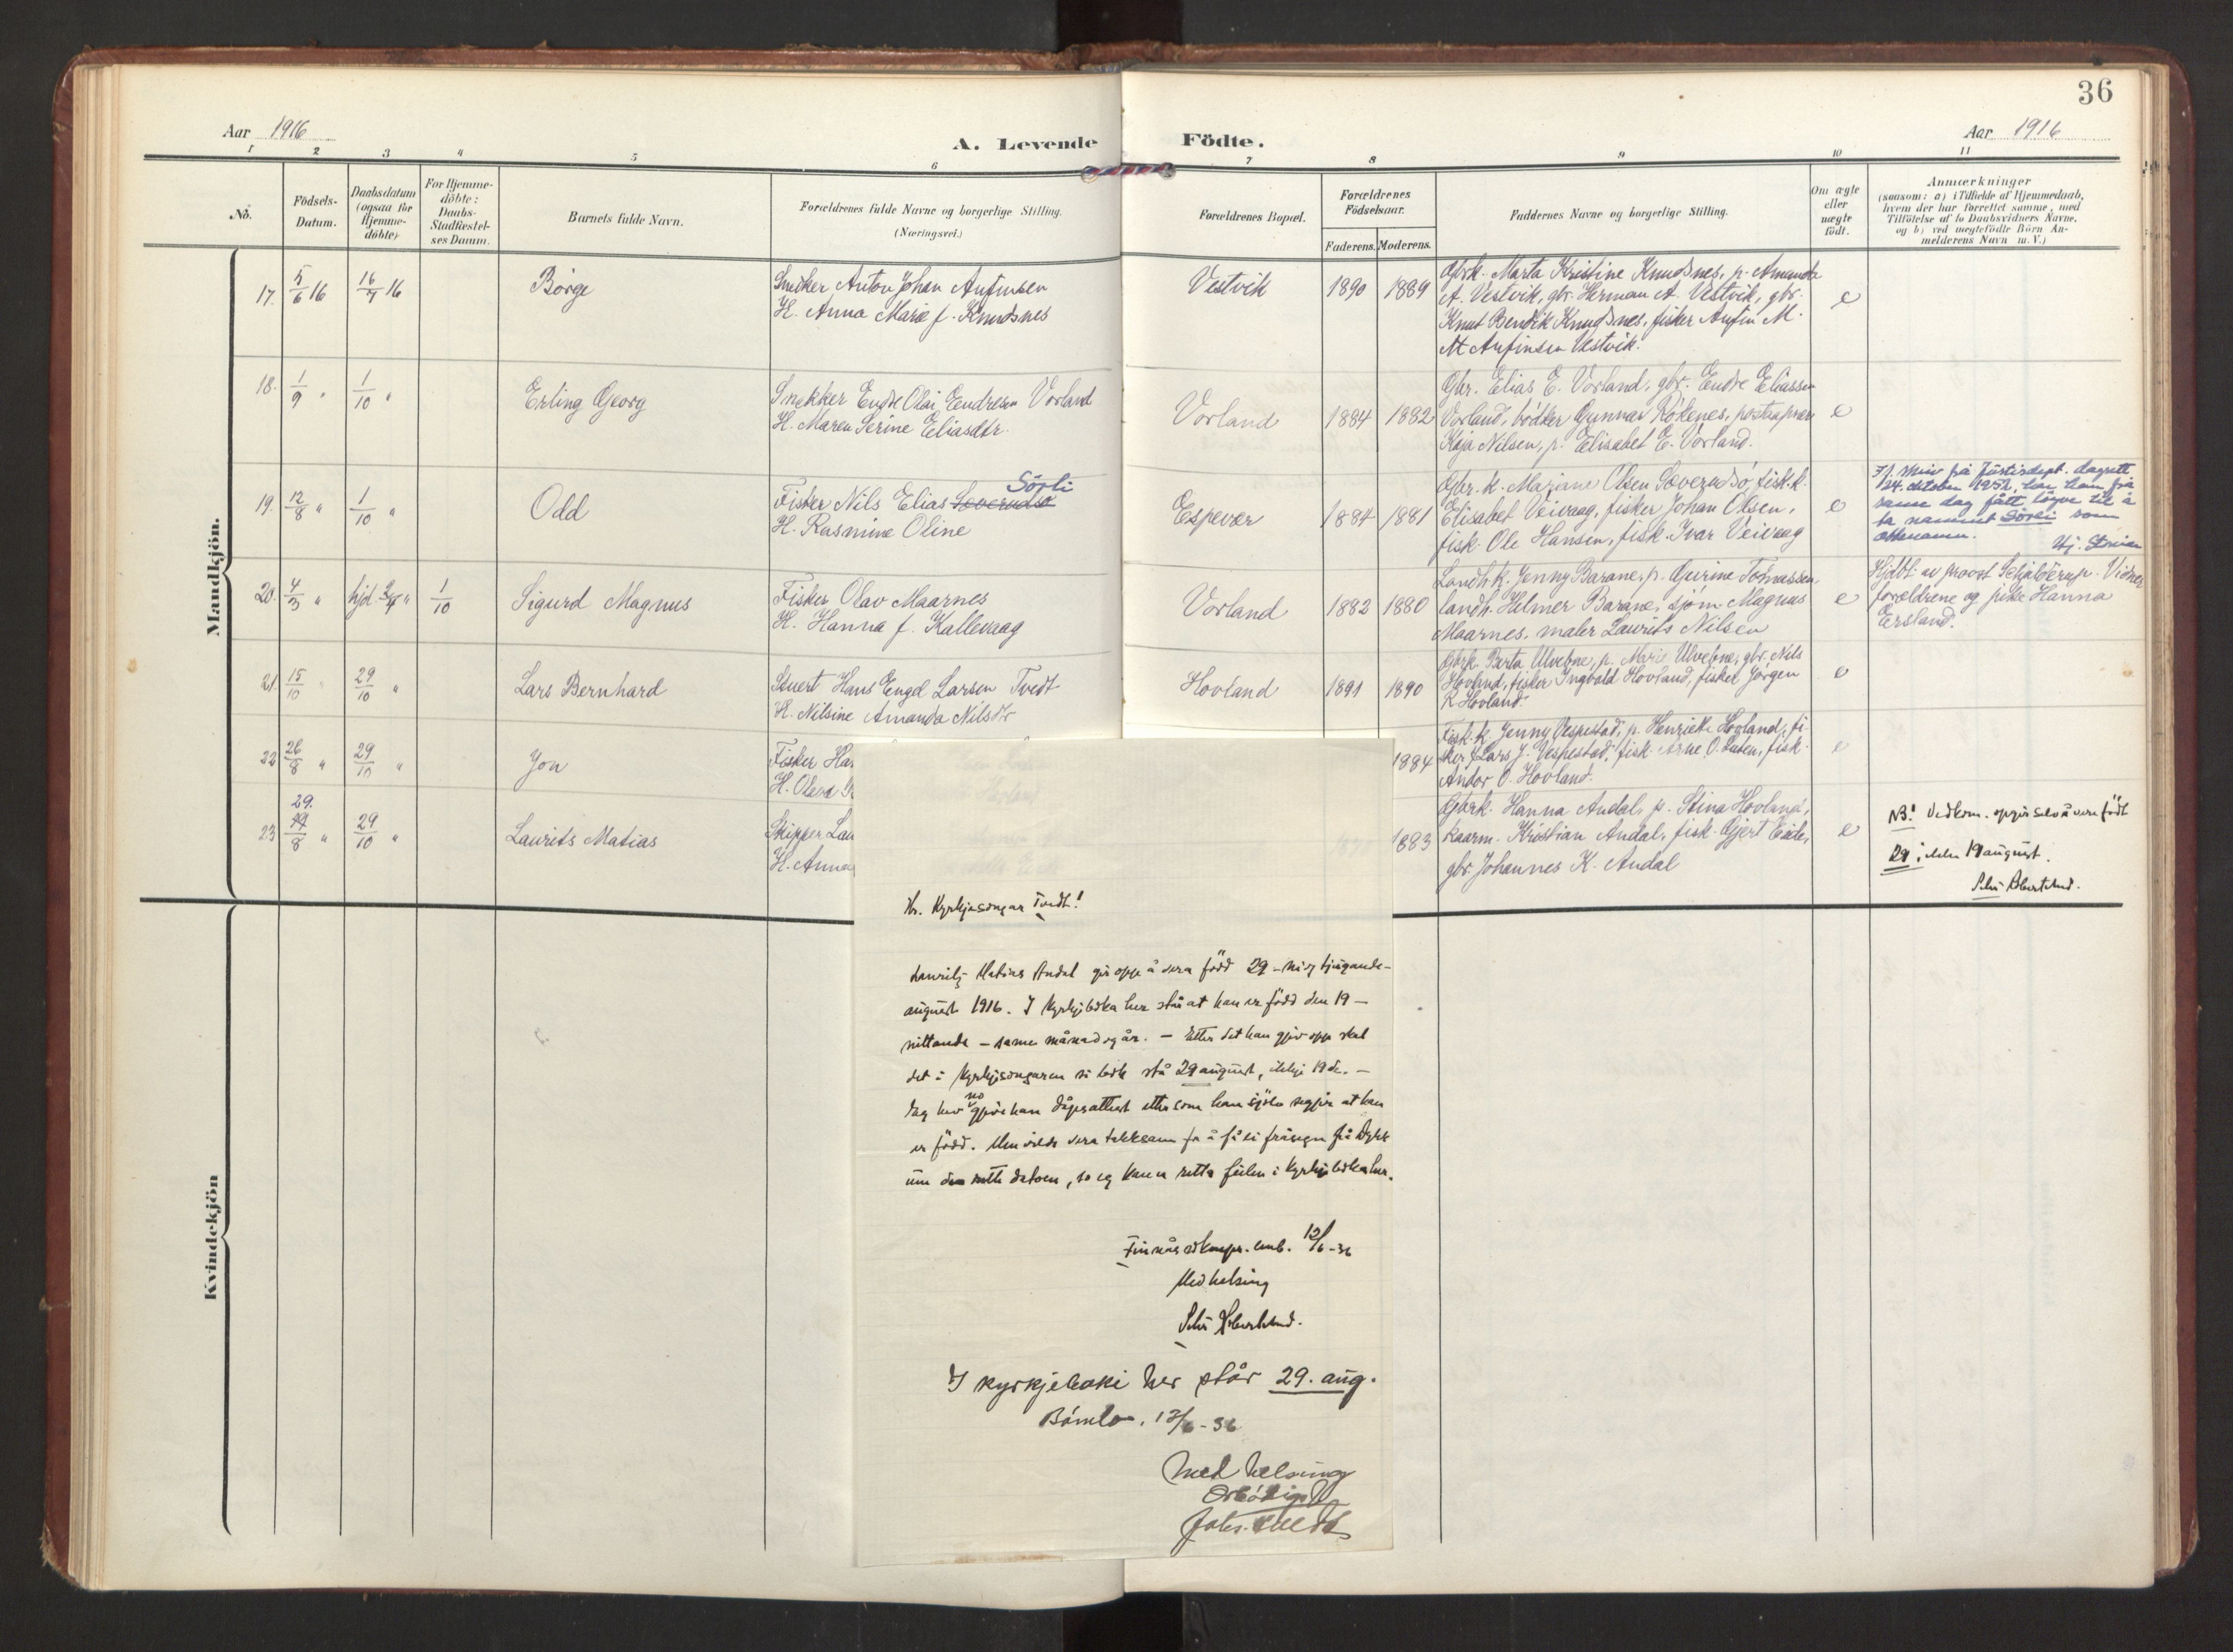 36
Aar 1916
A. Levende Födte.
Aar 1916
1 2 3 4 5 6 7 8 9 10 11
No.
Födsels-
Datum.
Daabsdatum
(ogsaa for
Hjemme-
döbte)
For Hjemme-
döbte:
Daabs-
Stadfæstel-
ses Datum.
Barnets fulde Navn.
Forældrenes fulde Navne og borgerlige Stilling.
(Næringsvei.)
Forældrenes Bopæl.
Forældrenes
Födselsaar.
Faderens. Moderens.
Faddernes Navne og borgerlige Stilling.
Om ægte
eller
uægte
födt.
Anmærkninger
(saasom: a) i Tilfælde af Hjemmedaab,
hvem der har forrettet samme, med
Tilföielse af to Daabsvidners Navne,
og b) ved uægtefödte Börn An-
melderens Navn m. V.)
Mandkjön.
17. 5/6 16 16/7 16 Børge
Snedker Anton Johan Anfinsen
H. Anna Marie f. Knudsnes
Vestvik 1890 1889
Gbrk. Marta Kristine Knudsnes, p. Amanda
A. Vestvik, gbr. Herman A. Vestvik, gbr.
Knut Bendik Knudsnes, fisker Anfin M.
M Anfinsen Vestvik.
e
18. 1/9 " 1/10 " Erling Georg
Snekker Endre Olai Endresen Vorland
H. Maren Serine Eliasdtr.
Vorland 1884 1882
Gbr. Elias E. Vorland, gbr. Endre Eliassen
Vorland, bödker Gunnar Rökenes,
Kaja Nilsen, p. Elisabet E. Vorland.
e
19. 12/8 " 1/10 " Odd
Fisker Nils Elias Soverudsö Sörli
H. Rasmine Oline
Espevær 1884 1881
Gbr. k. Mariane Olsen Soverudsö, fisk. k.
Elisabet Veivaag, fisker Johan Olsen,
fisk. Ole Hansen, fisk. Ivar Veivaag
e
Fl. skriv frå Justisdept. dagsett
24. oktober 1952, har han frå
same dag fått löyve til å
ta namnet Sörli som
ettenamn.
20. 4/3 " hjd 2/4 " 1/10 Sigurd Magnus
Fisker Olav Maarnes
H. Hanna f. Kallevaag
Vorland 1882 1880
Landh. k. Jenny Barane, p. Gurine Tomassen,
landh. Helmer Barane, sjöm. Magnus
Maarnes, maler Laurits Nilsen
e
Hjdbt. av provst Schjelderup. Vidner
forældrene og pike Hanna
Ersland.
21. 15/10 " 29/10 " Lars Bernhard
Stuert Hans Engel Larsen Tvedt
H. Nilsine Amanda Nilsdtr
Hovland 1891 1890
Gbrk. Berta Ulvebne, p. Marie Ulvebne, gbr. Nils
Hovland, fisker Ingvald Hovland, fisker Jörgen
R Hovland.
e
22 26/8 " 29/10 " Jon
Fisker Ha
H. Olava
1884
Fisk. k. Jenny Vespestad, p. Henriette Hovland, fi-
sker Lars J. Vespestad, fisk. Arne O. , fisk.
Andor O. Hovland.
e
23 29. 19/8 " 29/10 " Laurits Matias
Skipper Lau
H. Anna
1883
Gbrk. Hanna Andal, p. Stina Hovland,
Kaarm. Kristian Andal, fisk. Gjert Eide,
gbr. Johannes K. Andal
e
NB! Vedkom. oppgir selv å vere född
29, ikke 19 august.
Kvindekjön
Hr. Kyrkjesongar Tvedt!
Laurits Matias Andal gir opp å vera född 29 - niogtjugande -
august 1916. I Kyrkjeboka her står at han er född den 19 -
nittande - same månad og år. - Etter det han gjev opp skal
det i Kyrkjesongaren si bok stå 29 august, ikkje 19de. -
Eg hev no gjeve han dåpsattest etter som han sjölv segjer at han
er född. Men vilde vera takksam for å få ei fråsegn frå Dykk
um den rette datoen, so eg kann retta feilen i Kyrkjeboka her.
Finnås sokneprs. emb. 12/6-36
Med helsing
I kyrkjeboki her står 29. aug.
Bömlo, 12/6-36
Med helsing
Tvedt